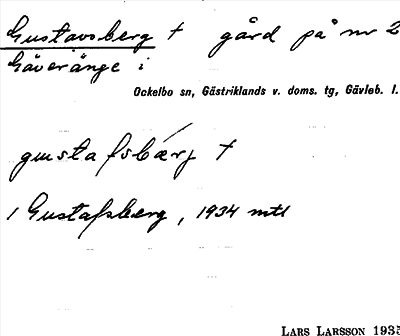 Gustavsberg + gård på nr 2
Gäveränge i
Ockelbo sn, Gästriklands v. doms. tg, Gävleb. l.
gustafsbærj +
1 Gustafsberg, 1934 mtl
LARS LARSSON 1935